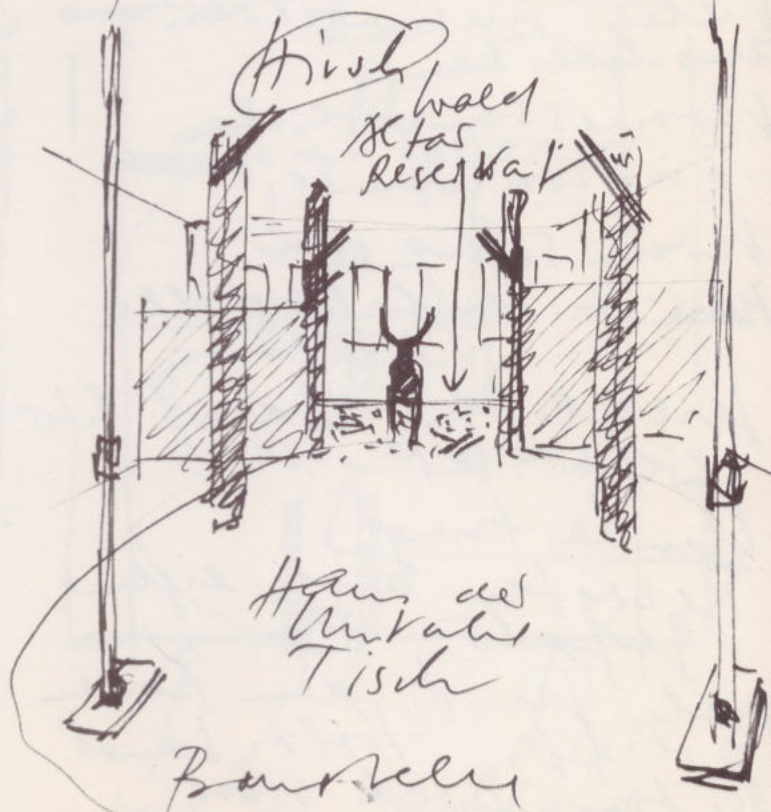 Hirsch
Wald
Altar
Reservat
Haus der
Tisch
Baustelle